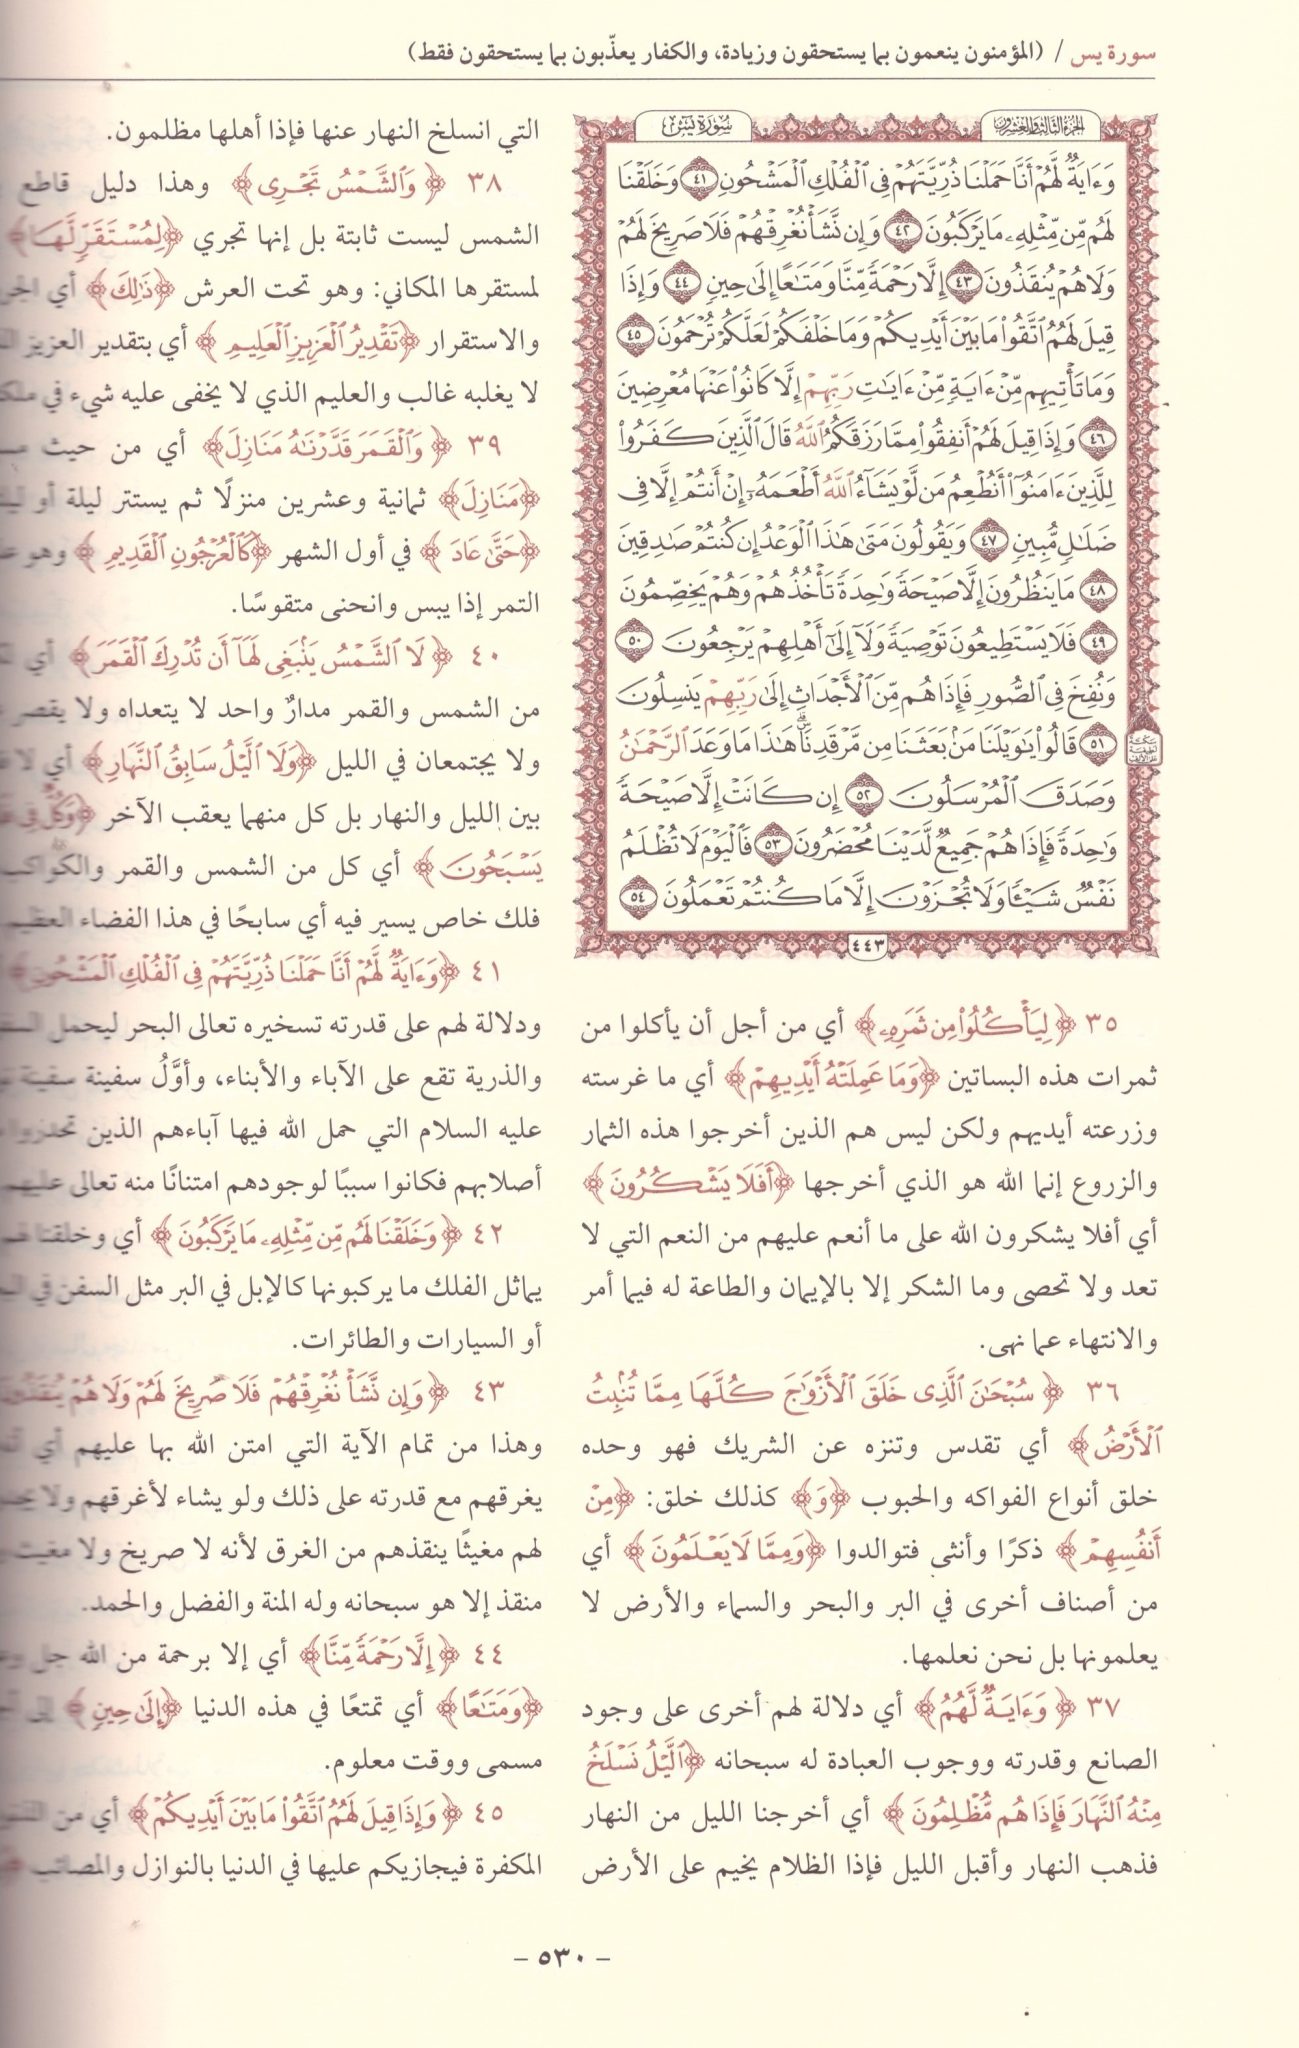 سورة يس / (المؤمنون ينعمون بما يستحقون وزيادة، والكفار يعذّبون بما يستحقون فقط)
الجزء الثالث والعشرون
سورة يس
وَءَايَةٌ لَّهُمْ أَنَّا حَمَلْنَا ذُرِّيَّتَهُمْ فِي ٱلْفُلْكِ ٱلْمَشْحُونِ ٤١ وَخَلَقْنَا
لَهُم مِّن مِّثْلِهِۦ مَا يَرْكَبُونَ ٤٢ وَإِن نَّشَأْ نُغْرِقْهُمْ فَلَا صَرِيخَ لَهُمْ
وَلَا هُمْ يُنقَذُونَ ٤٣ إِلَّا رَحْمَةً مِّنَّا وَمَتَٰعًا إِلَىٰ حِينٍ ٤٤ وَإِذَا
قِيلَ لَهُمُ ٱتَّقُوا۟ مَا بَيْنَ أَيْدِيكُمْ وَمَا خَلْفَكُمْ لَعَلَّكُمْ تُرْحَمُونَ ٤٥
وَمَا تَأْتِيهِم مِّنْ ءَايَةٍ مِّنْ ءَايَٰتِ رَبِّهِمْ إِلَّا كَانُوا۟ عَنْهَا مُعْرِضِينَ
٤٦ وَإِذَا قِيلَ لَهُمْ أَنفِقُوا۟ مِمَّا رَزَقَكُمُ ٱللَّهُ قَالَ ٱلَّذِينَ كَفَرُوا۟
لِلَّذِينَ ءَامَنُوٓا۟ أَنُطْعِمُ مَن لَّوْ يَشَآءُ ٱللَّهُ أَطْعَمَهُۥٓ إِنْ أَنتُمْ إِلَّا فِي
ضَلَٰلٍ مُّبِينٍ ٤٧ وَيَقُولُونَ مَتَىٰ هَٰذَا ٱلْوَعْدُ إِن كُنتُمْ صَٰدِقِينَ
٤٨ مَا يَنظُرُونَ إِلَّا صَيْحَةً وَٰحِدَةً تَأْخُذُهُمْ وَهُمْ يَخِصِّمُونَ
٤٩ فَلَا يَسْتَطِيعُونَ تَوْصِيَةً وَلَآ إِلَىٰٓ أَهْلِهِمْ يَرْجِعُونَ ٥٠
وَنُفِخَ فِي ٱلصُّورِ فَإِذَا هُم مِّنَ ٱلْأَجْدَاثِ إِلَىٰ رَبِّهِمْ يَنسِلُونَ
٥١ قَالُوا۟ يَٰوَيْلَنَا مَنۢ بَعَثَنَا مِن مَّرْقَدِنَا ۜ هَٰذَا مَا وَعَدَ ٱلرَّحْمَٰنُ
وَصَدَقَ ٱلْمُرْسَلُونَ ٥٢ إِن كَانَتْ إِلَّا صَيْحَةً
وَٰحِدَةً فَإِذَا هُمْ جَمِيعٌ لَّدَيْنَا مُحْضَرُونَ ٥٣ فَٱلْيَوْمَ لَا تُظْلَمُ
نَفْسٌ شَيْـًٔا وَلَا تُجْزَوْنَ إِلَّا مَا كُنتُمْ تَعْمَلُونَ ٥٤
٤٤٣
٣٥ ﴿لِيَأْكُلُوا۟ مِن ثَمَرِهِۦ﴾ أي من أجل أن يأكلوا من
ثمرات هذه البساتين ﴿وَمَا عَمِلَتْهُ أَيْدِيهِمْ﴾ أي ما غرسته
وزرعته أيديهم ولكن ليس هم الذين أخرجوا هذه الثمار
والزروع إنما الله هو الذي أخرجها ﴿أَفَلَا يَشْكُرُونَ﴾
أي أفلا يشكرون الله على ما أنعم عليهم من النعم التي لا
تعد ولا تحصى وما الشكر إلا بالإيمان والطاعة له فيما أمر
والانتهاء عما نهى.
٣٦ ﴿سُبْحَٰنَ ٱلَّذِي خَلَقَ ٱلْأَزْوَٰجَ كُلَّهَا مِمَّا تُنۢبِتُ
ٱلْأَرْضُ﴾ أي تقدس وتنزه عن الشريك فهو وحده
خلق أنواع الفواكه والحبوب ﴿وَ﴾ كذلك خلق: ﴿مِنْ
أَنفُسِهِمْ﴾ ذكرًا وأنثى فتوالدوا ﴿وَمِمَّا لَا يَعْلَمُونَ﴾ أي
من أصناف أخرى في البر والبحر والسماء والأرض لا
يعلمونها بل نحن نعلمها.
٣٧ ﴿وَءَايَةٌ لَّهُمُ﴾ أي دلالة لهم أخرى على وجود
الصانع وقدرته ووجوب العبادة له سبحانه ﴿ٱلَّيْلُ نَسْلَخُ
مِنْهُ ٱلنَّهَارَ فَإِذَا هُم مُّظْلِمُونَ﴾ أي أخرجنا الليل من النهار
فذهب النهار وأقبل الليل فإذا الظلام يخيم على الأرض
التي انسلخ النهار عنها فإذا أهلها مظلمون.
٣٨ ﴿وَٱلشَّمْسُ تَجْرِي﴾ وهذا دليل قاطع
الشمس ليست ثابتة بل إنها تجري ﴿لِمُسْتَقَرٍّ لَّهَا﴾
لمستقرها المكاني: وهو تحت العرش ﴿ذَٰلِكَ﴾ أي
والاستقرار ﴿تَقْدِيرُ ٱلْعَزِيزِ ٱلْعَلِيمِ﴾ أي بتقدير العزيز
لا يغلبه غالب والعليم الذي لا يخفى عليه شيء في
٣٩ ﴿وَٱلْقَمَرَ قَدَّرْنَٰهُ مَنَازِلَ﴾ أي من حيث
﴿مَنَازِلَ﴾ ثمانية وعشرين منزلًا ثم يستتر ليلة أو
﴿حَتَّىٰ عَادَ﴾ في أول الشهر ﴿كَٱلْعُرْجُونِ ٱلْقَدِيمِ﴾ وهو
التمر إذا يبس وانحنى متقوسًا.
٤٠ ﴿لَا ٱلشَّمْسُ يَنۢبَغِي لَهَآ أَن تُدْرِكَ ٱلْقَمَرَ﴾ أي
من الشمس والقمر مدارٌ واحد لا يتعداه ولا يقصر
ولا يجتمعان في الليل ﴿وَلَا ٱلَّيْلُ سَابِقُ ٱلنَّهَارِ﴾ أي
بين الليل والنهار بل كل منهما يعقب الآخر ﴿وَكُلٌّ فِي
يَسْبَحُونَ﴾ أي كل من الشمس والقمر والكواكب
فلك خاص يسير فيه أي سابحًا في هذا الفضاء العظيم
٤١ ﴿وَءَايَةٌ لَّهُمْ أَنَّا حَمَلْنَا ذُرِّيَّتَهُمْ فِي ٱلْفُلْكِ ٱلْمَشْحُونِ﴾
ودلالة لهم على قدرته تسخيره تعالى البحر ليحمل
والذرية تقع على الآباء والأبناء، وأوَّلُ سفينة سفينة
عليه السلام التي حمل الله فيها آباءهم الذين
أصلابهم فكانوا سببًا لوجودهم امتنانًا منه تعالى عليهم
٤٢ ﴿وَخَلَقْنَا لَهُم مِّن مِّثْلِهِۦ مَا يَرْكَبُونَ﴾ أي وخلقنا لهم
يماثل الفلك ما يركبونها كالإبل في البر مثل السفن في
أو السيارات والطائرات.
٤٣ ﴿وَإِن نَّشَأْ نُغْرِقْهُمْ فَلَا صَرِيخَ لَهُمْ وَلَا هُمْ يُنقَذُونَ
وهذا من تمام الآية التي امتن الله بها عليهم أي
يغرقهم مع قدرته على ذلك ولو يشاء لأغرقهم ولا
لهم مغيثًا ينقذهم من الغرق لأنه لا صريخ ولا مغيث
منقذ إلا هو سبحانه وله المنة والفضل والحمد.
٤٤ ﴿إِلَّا رَحْمَةً مِّنَّا﴾ أي إلا برحمة من الله جل
﴿وَمَتَٰعًا﴾ أي تمتعًا في هذه الدنيا ﴿إِلَىٰ حِينٍ﴾ إلى
مسمى ووقت معلوم.
٤٥ ﴿وَإِذَا قِيلَ لَهُمُ ٱتَّقُوا۟ مَا بَيْنَ أَيْدِيكُمْ﴾ أي من
المكفرة فيجازيكم عليها في الدنيا بالنوازل والمصائب
- ٥٣٠ -